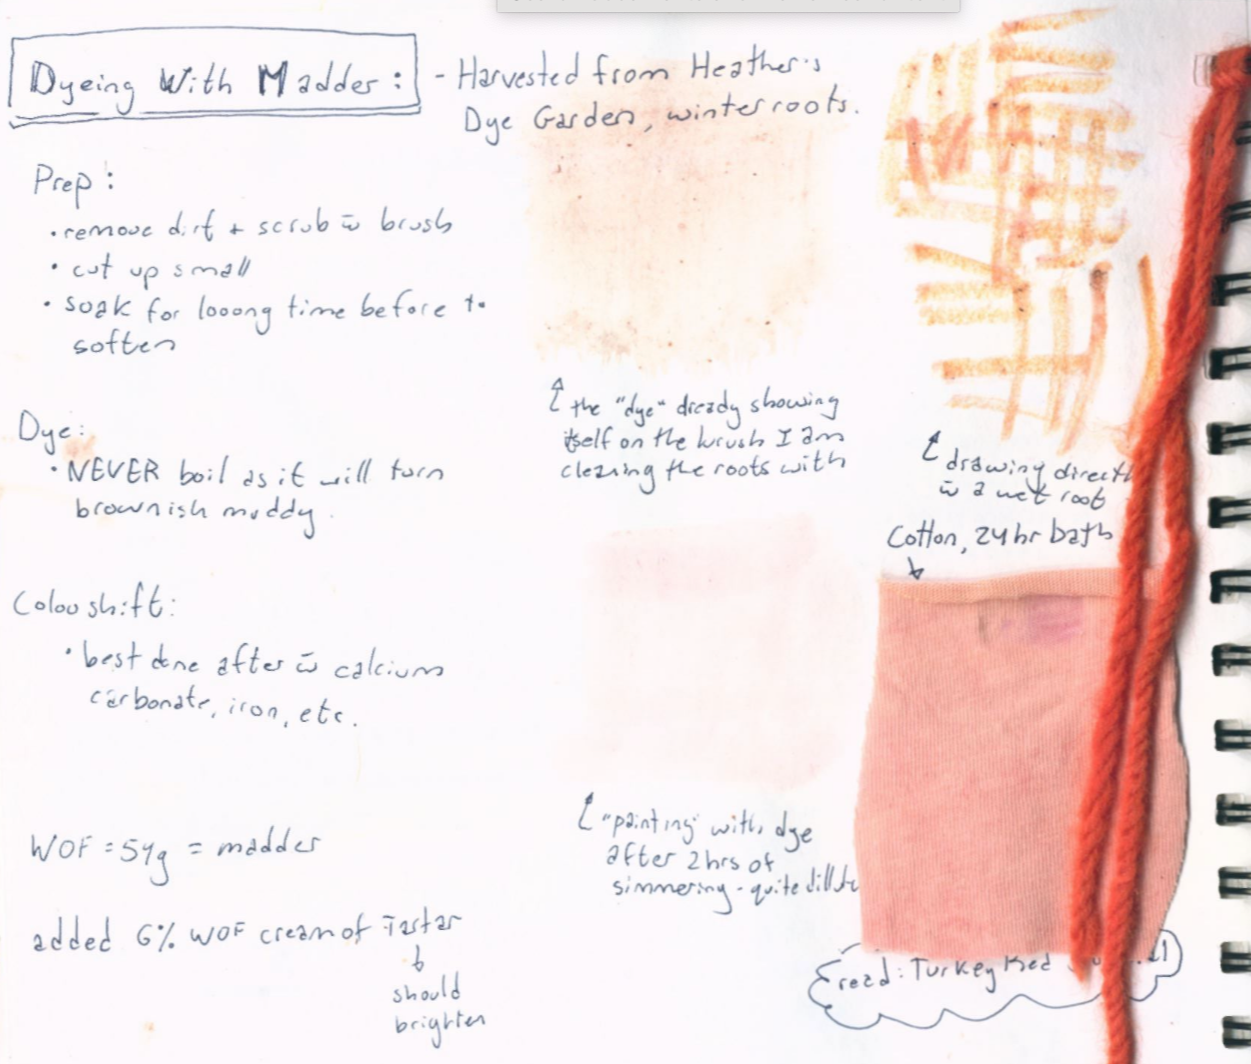 Dyeing With Madder:
- Harvested from Heather's
Dye Garden, winter roots.
Prep:
• remove dirt + scrub w̄ brush
• cut up small
• soak for looong time before to
soften
Dye:
• NEVER boil as it will turn
brownish muddy.
Colou shift:
• best done after w̄ calcium
carbonate, iron, etc.
WOF = 54g = madder
added 6% WOF cream of Tartar
should
brighten
the "dye" already showing
itself on the brush I am
cleaning the roots with
drawing direct
w̄ a wet root
Cotton, 24hr bath
"painting" with dye
after 2hrs of
simmering - quite dillute
read: Turkey Red